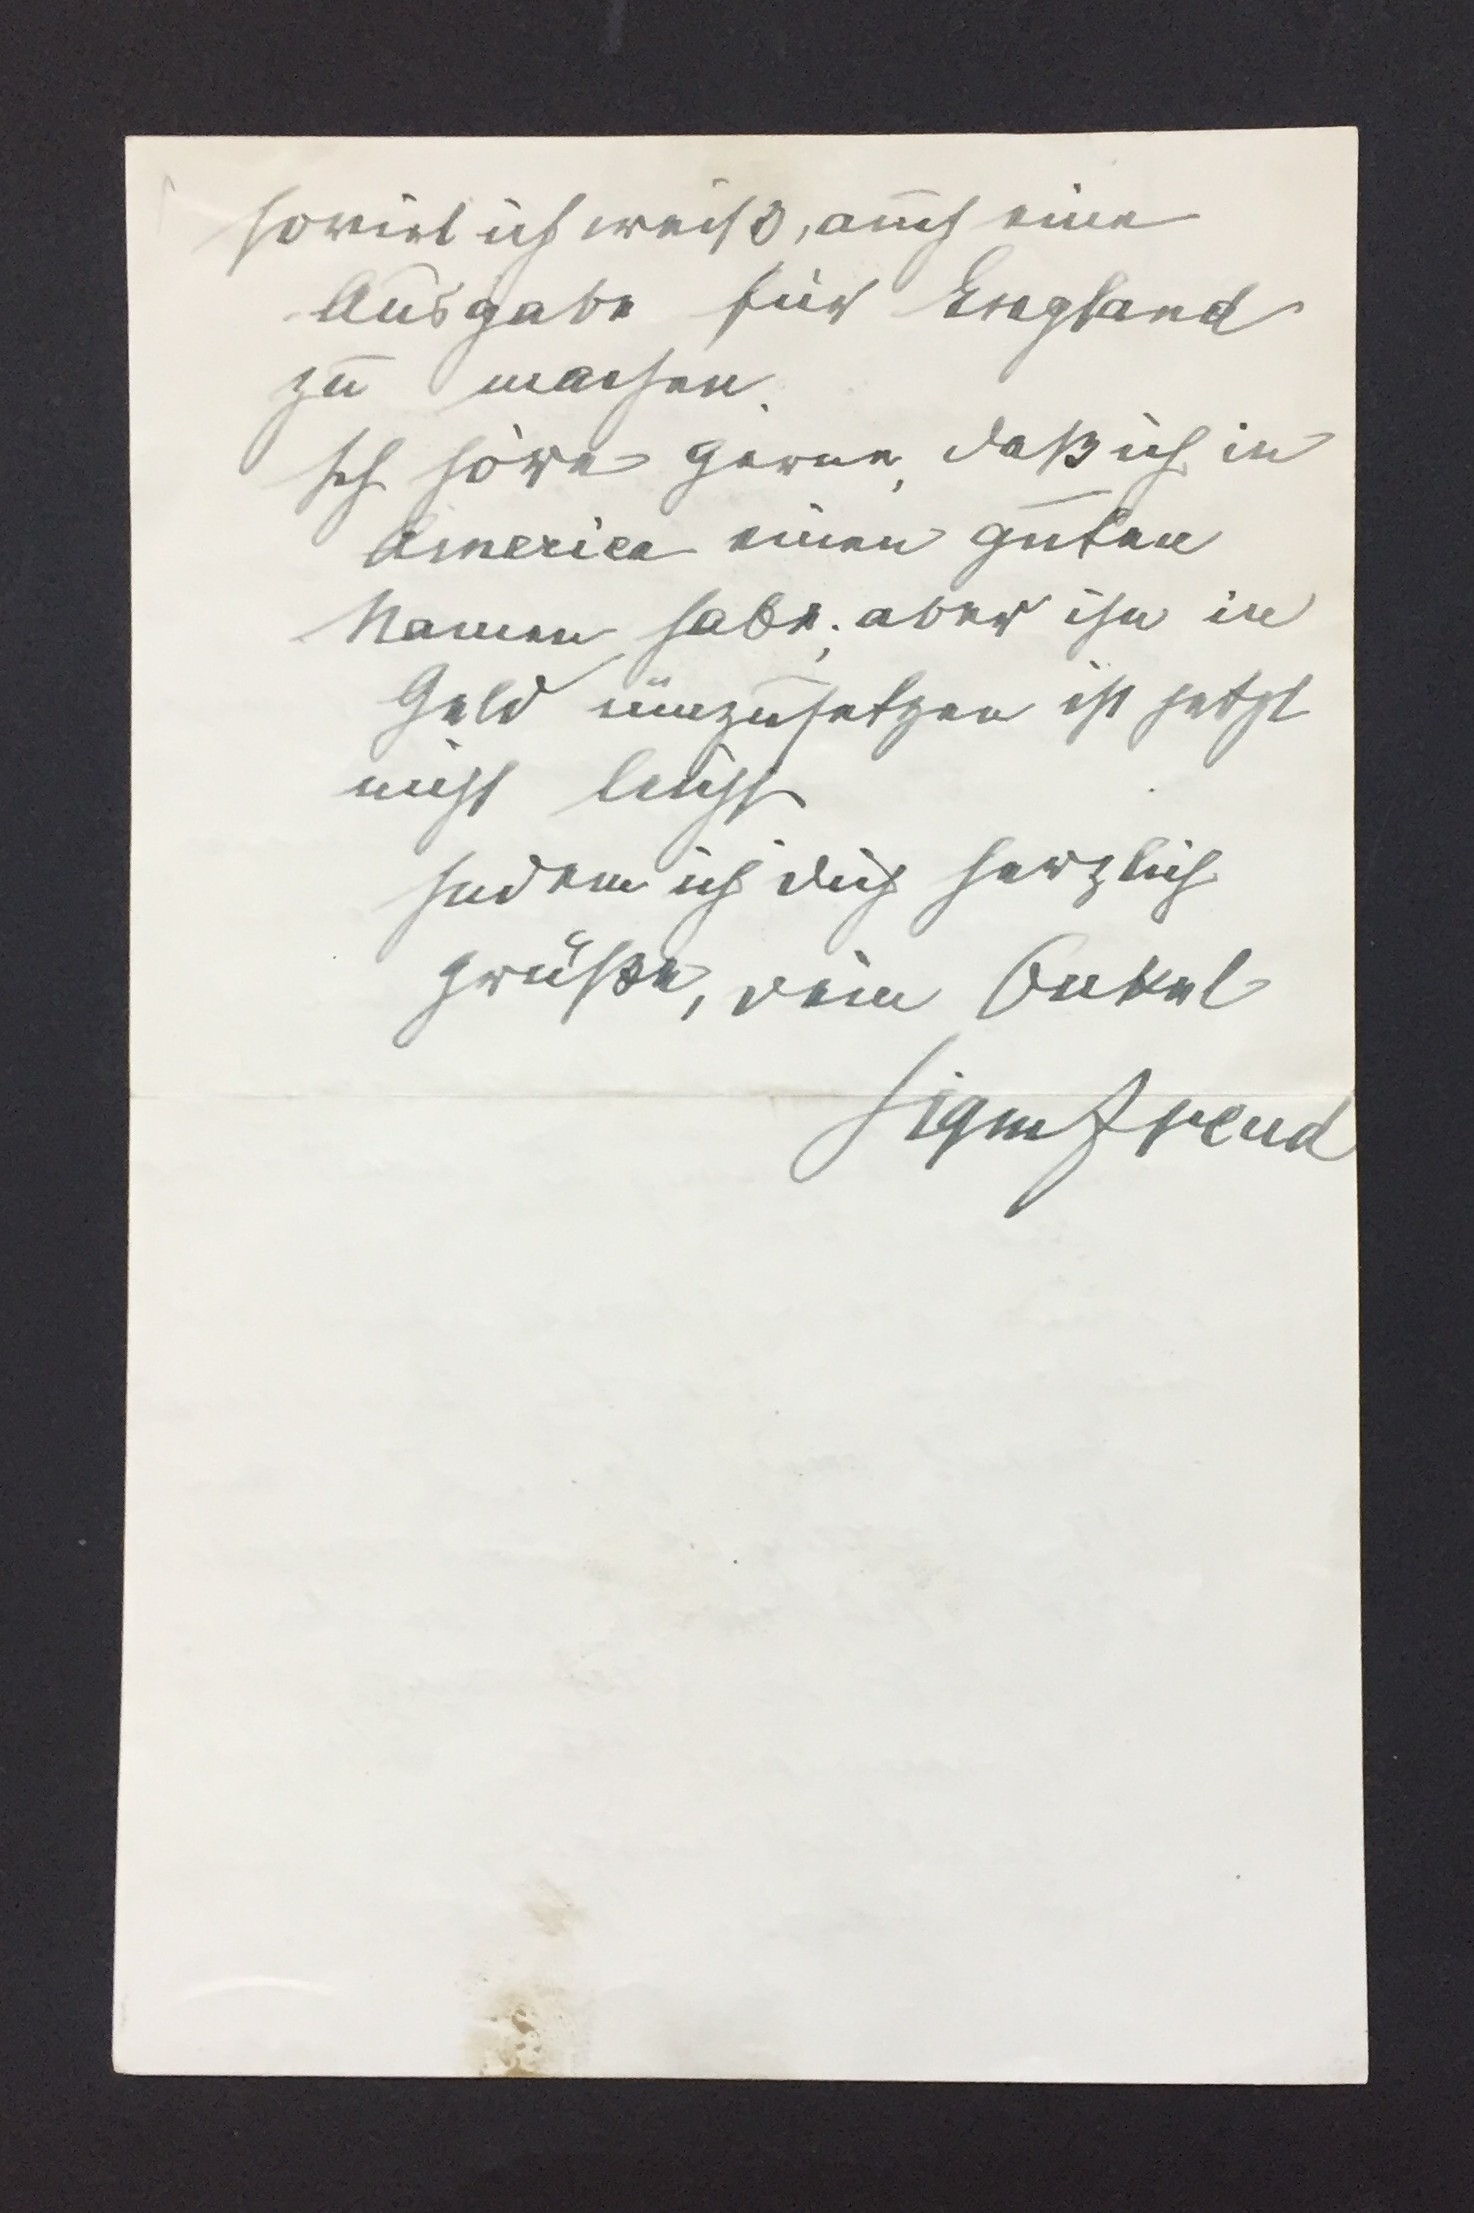 soviel ich weiß, auch eine
Ausgabe für England
zu machen.
Ich höre gerne, daß ich in
America einen guten
Namen habe; aber ihn in
Geld umzusetzen ist jetzt
nicht leicht
Indem ich dich herzlich
grüße, dein Onkel
Sigm Freud